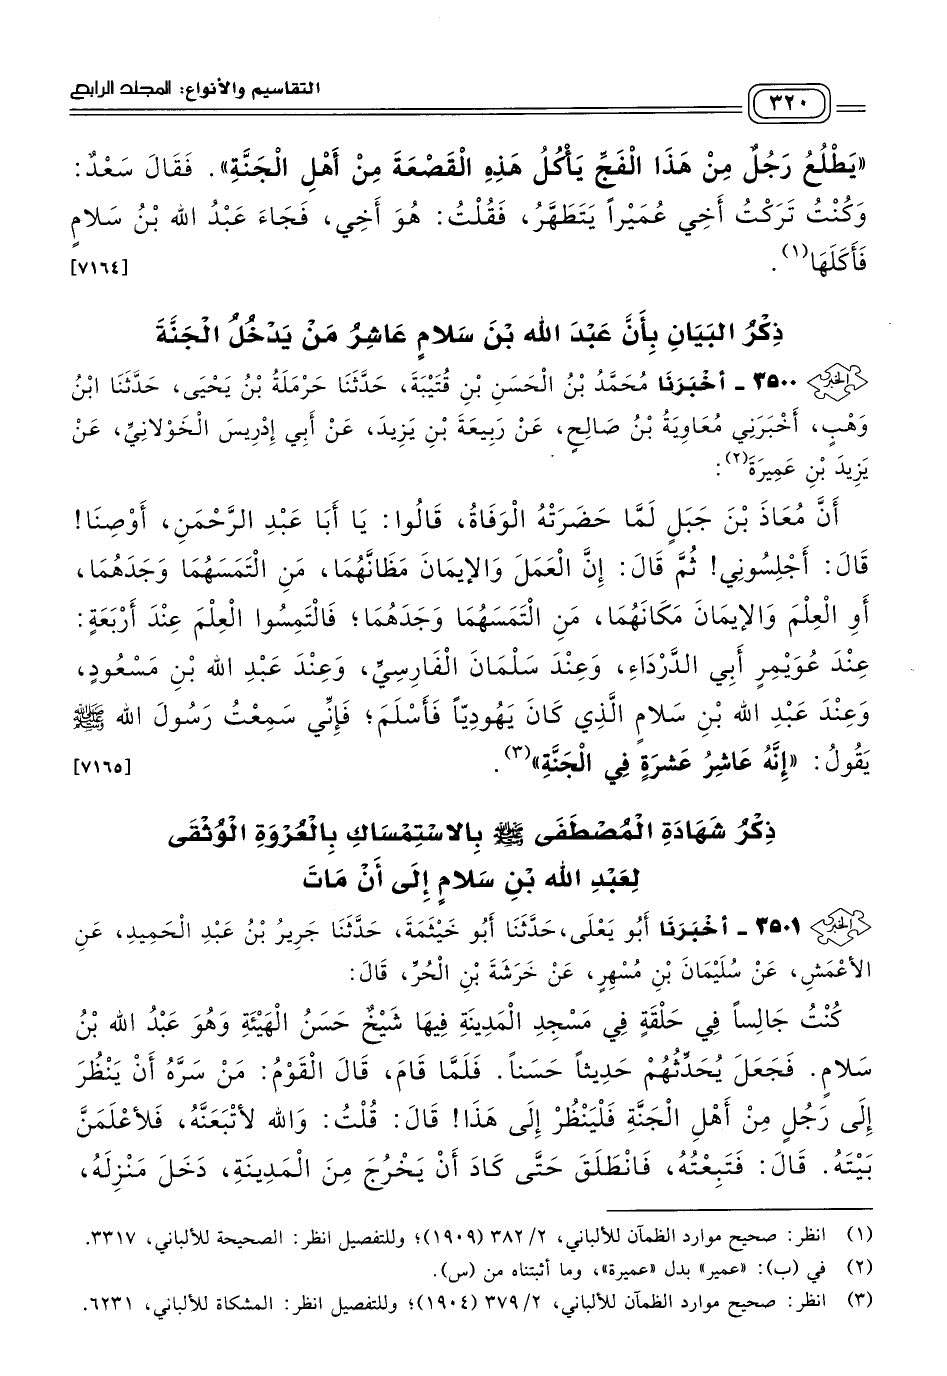 التقاسيم والأنواع: المجلد الرابع
٣٢٠
«يَطْلُعُ رَجُلٌ مِنْ هَذَا الْفَجِّ يَأْكُلُ هَذِهِ الْقَصْعَةَ مِنْ أَهْلِ الْجَنَّةِ». فَقَالَ سَعْدٌ:
وَكُنْتُ تَرَكْتُ أَخِي عُمَيْراً يَتَطَهَّرُ، فَقُلْتُ: هُوَ أَخِي، فَجَاءَ عَبْدُ الله بْنُ سَلَامٍ
فَأَكَلَهَا(١). [٧١٦٤]
ذِكْرُ البَيَانِ بِأَنَّ عَبْدَ الله بْنَ سَلَامٍ عَاشِرُ مَنْ يَدْخُلُ الْجَنَّةَ
٣٥٠٠ - أَخْبَرَنَا مُحَمَّدُ بْنُ الْحَسَنِ بْنِ قُتَيْبَةَ، حَدَّثَنَا حَرْمَلَةُ بْنُ يَحْيَى، حَدَّثَنَا ابْنُ
وَهْبٍ، أَخْبَرَنِي مُعَاوِيَةُ بْنُ صَالِحٍ، عَنْ رَبِيعَةَ بْنِ يَزِيدَ، عَنْ أَبِي إِدْرِيسَ الْخَوْلَانِيِّ، عَنْ
يَزِيدَ بْنِ عَمِيرَةَ(٢):
أَنَّ مُعَاذَ بْنَ جَبَلٍ لَمَّا حَضَرَتْهُ الْوَفَاةُ، قَالُوا: يَا أَبَا عَبْدِ الرَّحْمَنِ، أَوْصِنَا!
قَالَ: أَجْلِسُونِي! ثُمَّ قَالَ: إِنَّ الْعَمَلَ وَالإِيمَانَ مَظَانَّهُمَا، مَنِ الْتَمَسَهُمَا وَجَدَهُمَا،
أَوِ الْعِلْمَ وَالإِيمَانَ مَكَانَهُمَا، مَنِ الْتَمَسَهُمَا وَجَدَهُمَا؛ فَالْتَمِسُوا الْعِلْمَ عِنْدَ أَرْبَعَةٍ:
عِنْدَ عُوَيْمِرٍ أَبِي الدَّرْدَاءِ، وَعِنْدَ سَلْمَانَ الْفَارِسِيِّ، وَعِنْدَ عَبْدِ الله بْنِ مَسْعُودٍ،
وَعِنْدَ عَبْدِ الله بْنِ سَلَامٍ الَّذِي كَانَ يَهُودِيّاً فَأَسْلَمَ؛ فَإِنِّي سَمِعْتُ رَسُولَ الله ﷺ
يَقُولُ: «إِنَّهُ عَاشِرُ عَشَرَةٍ فِي الْجَنَّةِ»(٣). [٧١٦٥]
ذِكْرُ شَهَادَةِ الْمُصْطَفَى ﷺ بِالاسْتِمْسَاكِ بِالْعُرْوَةِ الْوُثْقَى
لِعَبْدِ الله بْنِ سَلَامٍ إِلَى أَنْ مَاتَ
٣٥٠١ - أَخْبَرَنَا أَبُو يَعْلَى، حَدَّثَنَا أَبُو خَيْثَمَةَ، حَدَّثَنَا جَرِيرُ بْنُ عَبْدِ الْحَمِيدِ، عَنِ
الأَعْمَشِ، عَنْ سُلَيْمَانَ بْنِ مُسْهِرٍ، عَنْ خَرَشَةَ بْنِ الْحُرِّ، قَالَ:
كُنْتُ جَالِساً فِي حَلْقَةٍ فِي مَسْجِدِ الْمَدِينَةِ فِيهَا شَيْخٌ حَسَنُ الْهَيْئَةِ وَهُوَ عَبْدُ الله بْنُ
سَلَامٍ. فَجَعَلَ يُحَدِّثُهُمْ حَدِيثاً حَسَناً. فَلَمَّا قَامَ، قَالَ الْقَوْمُ: مَنْ سَرَّهُ أَنْ يَنْظُرَ
إِلَى رَجُلٍ مِنْ أَهْلِ الْجَنَّةِ فَلْيَنْظُرْ إِلَى هَذَا! قَالَ: قُلْتُ: وَالله لأَتْبَعَنَّهُ، فَلأَعْلَمَنَّ
بَيْتَهُ. قَالَ: فَتَبِعْتُهُ، فَانْطَلَقَ حَتَّى كَادَ أَنْ يَخْرُجَ مِنَ الْمَدِينَةِ، دَخَلَ مَنْزِلَهُ،
(١) انظر: صحيح موارد الظمآن للألباني، ٢/ ٣٨٢ (١٩٠٩)؛ وللتفصيل انظر: الصحيحة للألباني، ٣٣١٧.
(٢) في (ب): «عمير» بدل «عميرة»، وما أثبتناه من (س).
(٣) انظر: صحيح موارد الظمآن للألباني، ٢/ ٣٧٩ (١٩٠٤)؛ وللتفصيل انظر: المشكاة للألباني، ٦٢٣١.